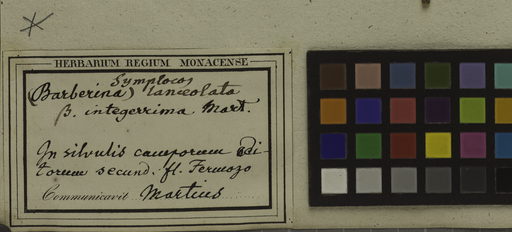 HERBARIUM REGIUM MONACENSE
Symplocos
(Barberina) lanceolata
β. integerrima Mart.
In silvulis camporum edi-
torum secund. fl. Formozo
Communicavit Martius